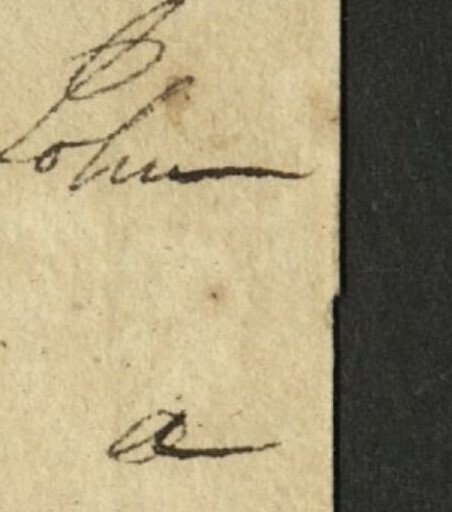 John
a